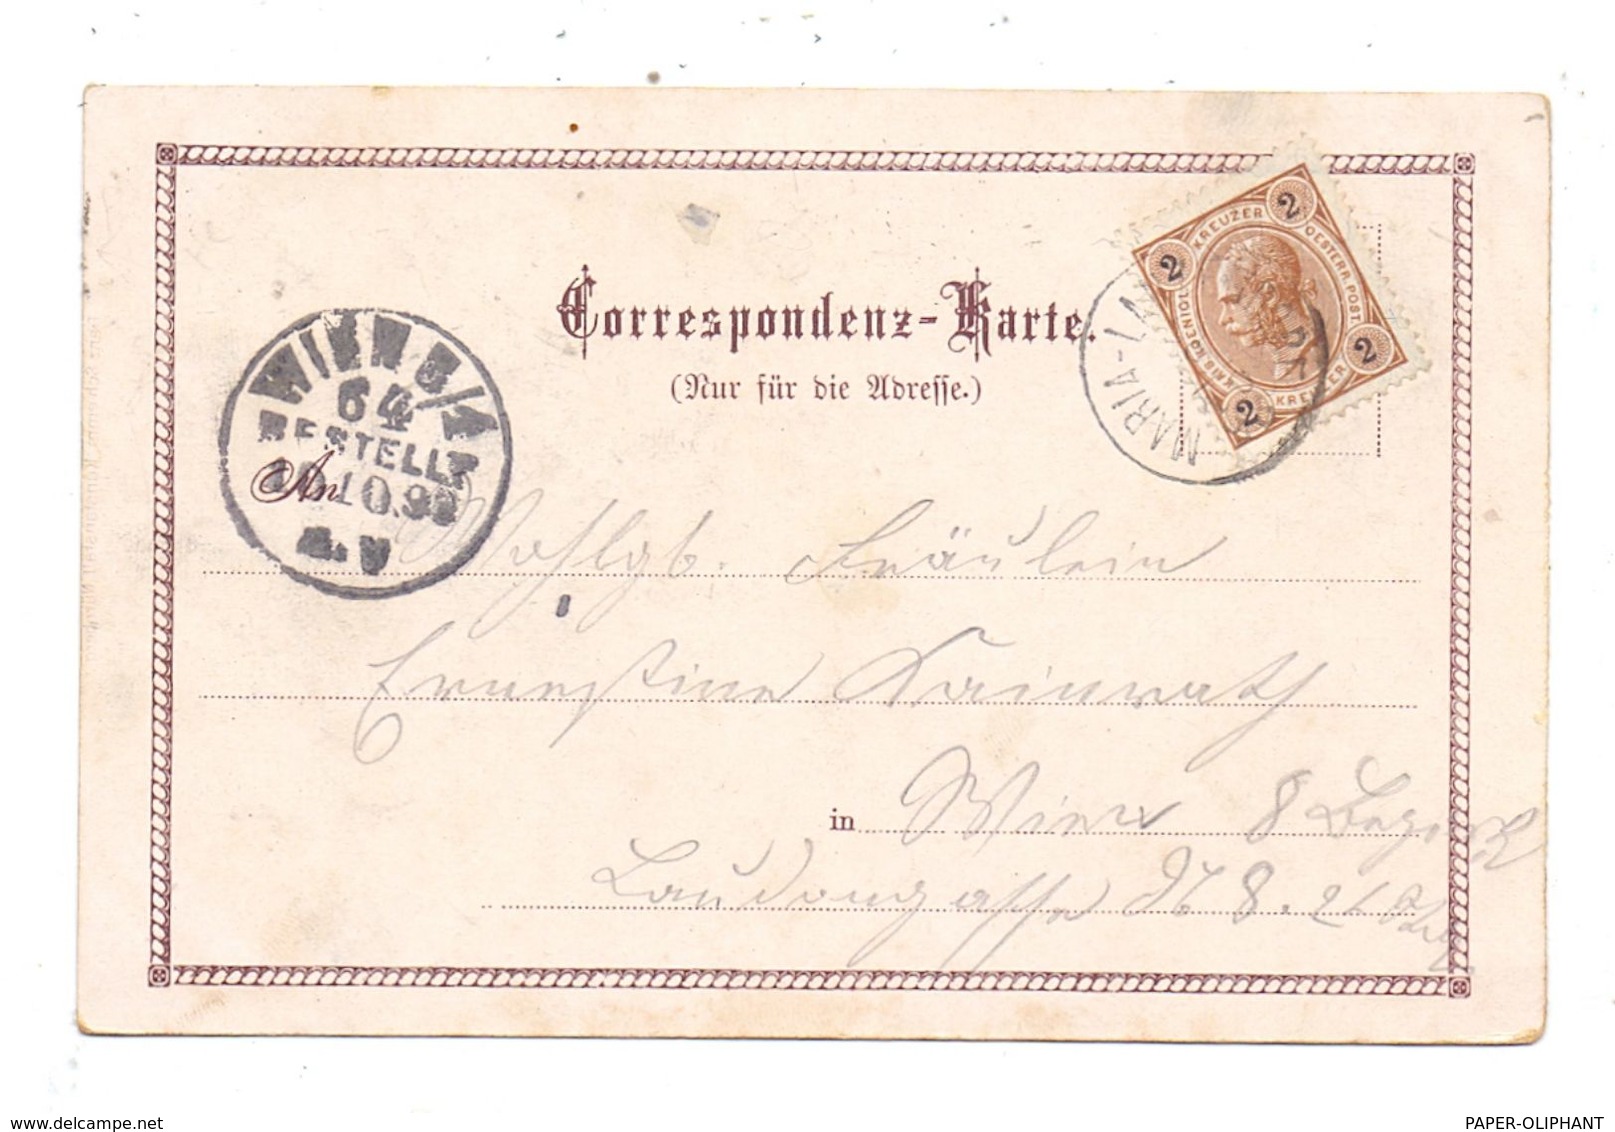 Correspondenz-Karte.
(Nur für die Adresse.)
2 KREUZER 2
OESTERR. POST
KAIS. KOENIGL.
2 KREUZER 2
MARIA-LA
WIEN 8/1
64
BESTELLT
10.9
An
Wohlgb. Fräulein
Ernestine Kainrath
in Wien 8 Bezirk
Laudongasse No 8. 21
www.delcampe.net
PAPER-OLIPHANT